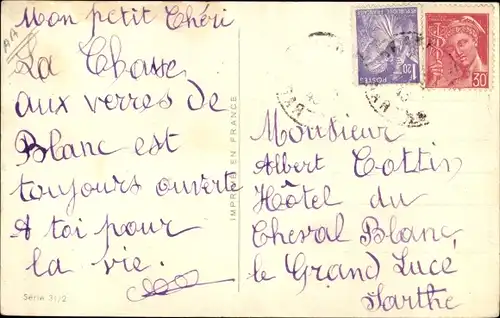 AA
Mon petit Chéri
La Chasse
aux verres de
Blanc est
toujours ouvert
A toi pour
la vie.
Série 31/2
IMPRIMÉ EN FRANCE
POSTES
1F20
30
Monsieur
Albert Cottin
Hôtel du
Cheval Blanc
le Grand Lucé
Sarthe